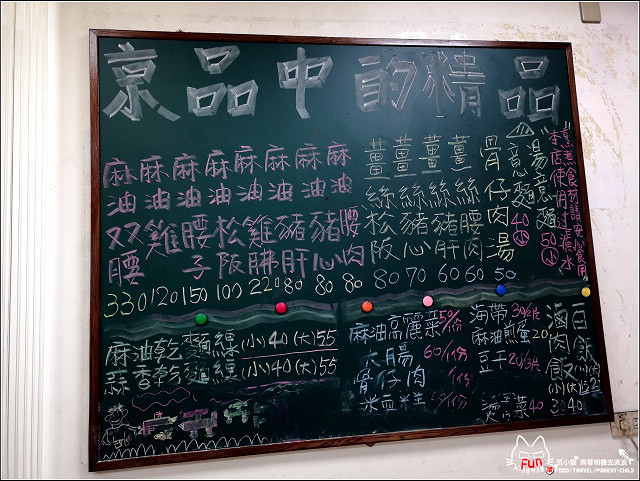 京品中的精品
麻油双腰 330
麻油雞 120
麻油腰子 150
麻油松阪 100
麻油雞腓 220
麻油豬肝 80
麻油豬心 80
麻油腰肉 80
薑絲松阪 80
薑絲豬心 70
薑絲豬肝 60
薑絲腰肉 60
骨仔肉湯 50
意麵 40小
湯意麵 50小
本店使用过濾水
烹煮食材請安心食用
麻油乾麵線 (小)40 (大)55
蒜香乾麵線 (小)40 (大)55
麻油高麗菜 50/份
大腸 60/份
骨仔肉 /份
米血糕 /份
海帶 30/份
麻油煎蛋 20
豆干 20/份
燙青菜 40
滷肉飯 (大)40 30
白飯
Fun
FOOD/TRAVEL/PARENT-CHILD